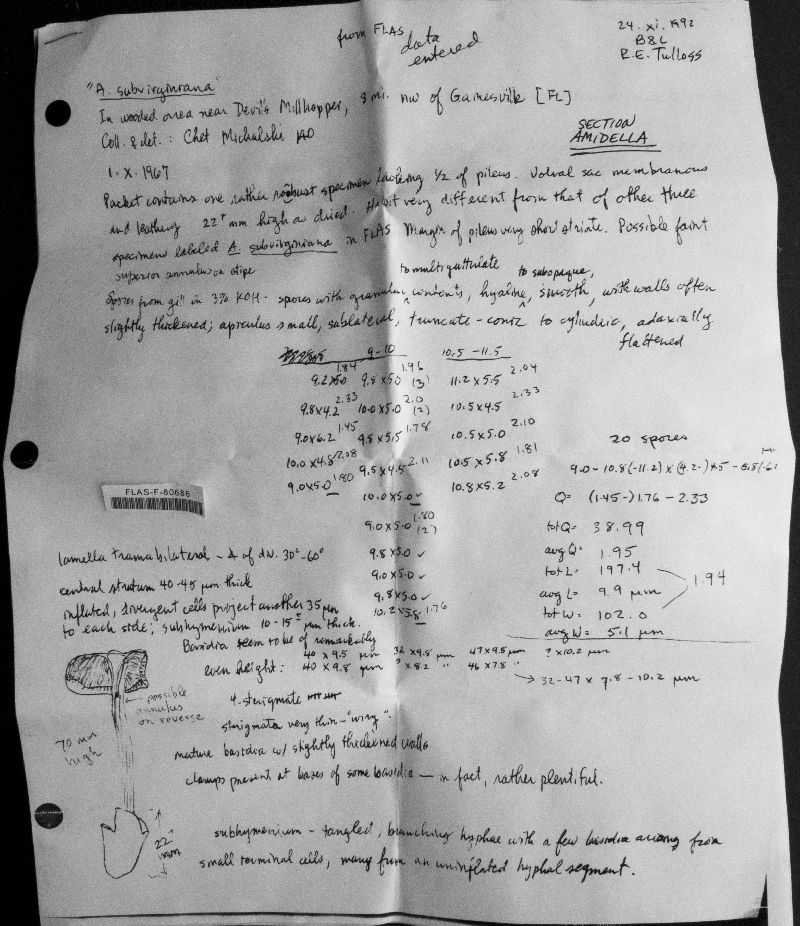 from FLAS
data
entered
24. xi. 1992
B&L
R.E. Tulloss
"A. subvirginiana"
In wooded area near Devil's Millhopper, 8 mi. NW of Gainesville [FL]
Coll. & det.: Chet Michalski
SECTION
AMIDELLA
1. X. 1967
Packet contains one rather robust specimen lacking 1/2 of pileus. Volval sac membranous
and leathery 22+ mm high as dried. Habit very different from that of other three
specimens labeled A. subvirginiana in FLAS Margin of pileus very short striate. Possible faint
superior annulus on stipe
to multiguttulate to subopaque,
Spores from gill in 3% KOH - spores with granular contents, hyaline, smooth, with walls often
slightly thickened; apiculus small, sublateral, truncate-conic to cylindric, adaxially
flattened
9-10 10.5-11.5
1.84 1.96 2.04
9.2x5.0 9.8x5.0 (3) 11.2x5.5
2.33 2.0 2.33
9.8x4.2 10.0x5.0 (2) 10.5x4.5
1.45 1.78 2.10
9.0x6.2 9.5x5.5 10.5x5.0
20 spores
2.08 2.11 1.81
10.0x4.8 9.5x4.5 10.5x5.8
9.0-10.8(-11.2) x (4.2-)
1.80 2.08
9.0x5.0 10.0x5.0 ✓ 10.8x5.2
Q= (1.45-)1.76-2.33
FLAS-F-60686
1.80
9.0x5.0 (2)
totQ= 38.99
9.8x5.0 ✓
avgQ= 1.95
9.0x5.0 ✓
totL= 197.4
9.8x5.0 ✓
avgL= 9.9 µm
1.94
10.2x5.8 1.76
totW= 102.0
avgW= 5.1 µm
lamella trama bilateral - ∡ of div. 30°-60°
central stratum 40-45 µm thick
inflated, divergent cells project another 35 µm
to each side; subhymenium 10-15± µm thick.
Basidia seem to be of remarkably
even height: 40 x 9.5 µm 32 x 9.8 µm 47 x 9.5 µm ? x 10.2 µm
40 x 9.8 µm ? x 8.2 " 46 x 7.8 "
→ 32-47 x 7.8-10.2 µm
possible
annulus
on reverse
4-sterigmate
sterigmata very thin - "wiry".
70 mm
high
mature basidia w/ slightly thickened walls
clamps present at bases of some basidia — in fact, rather plentiful.
22+
mm
subhymenium - tangled, branching hyphae with a few basidia arising from
small terminal cells, many from an uninflated hyphal segment.